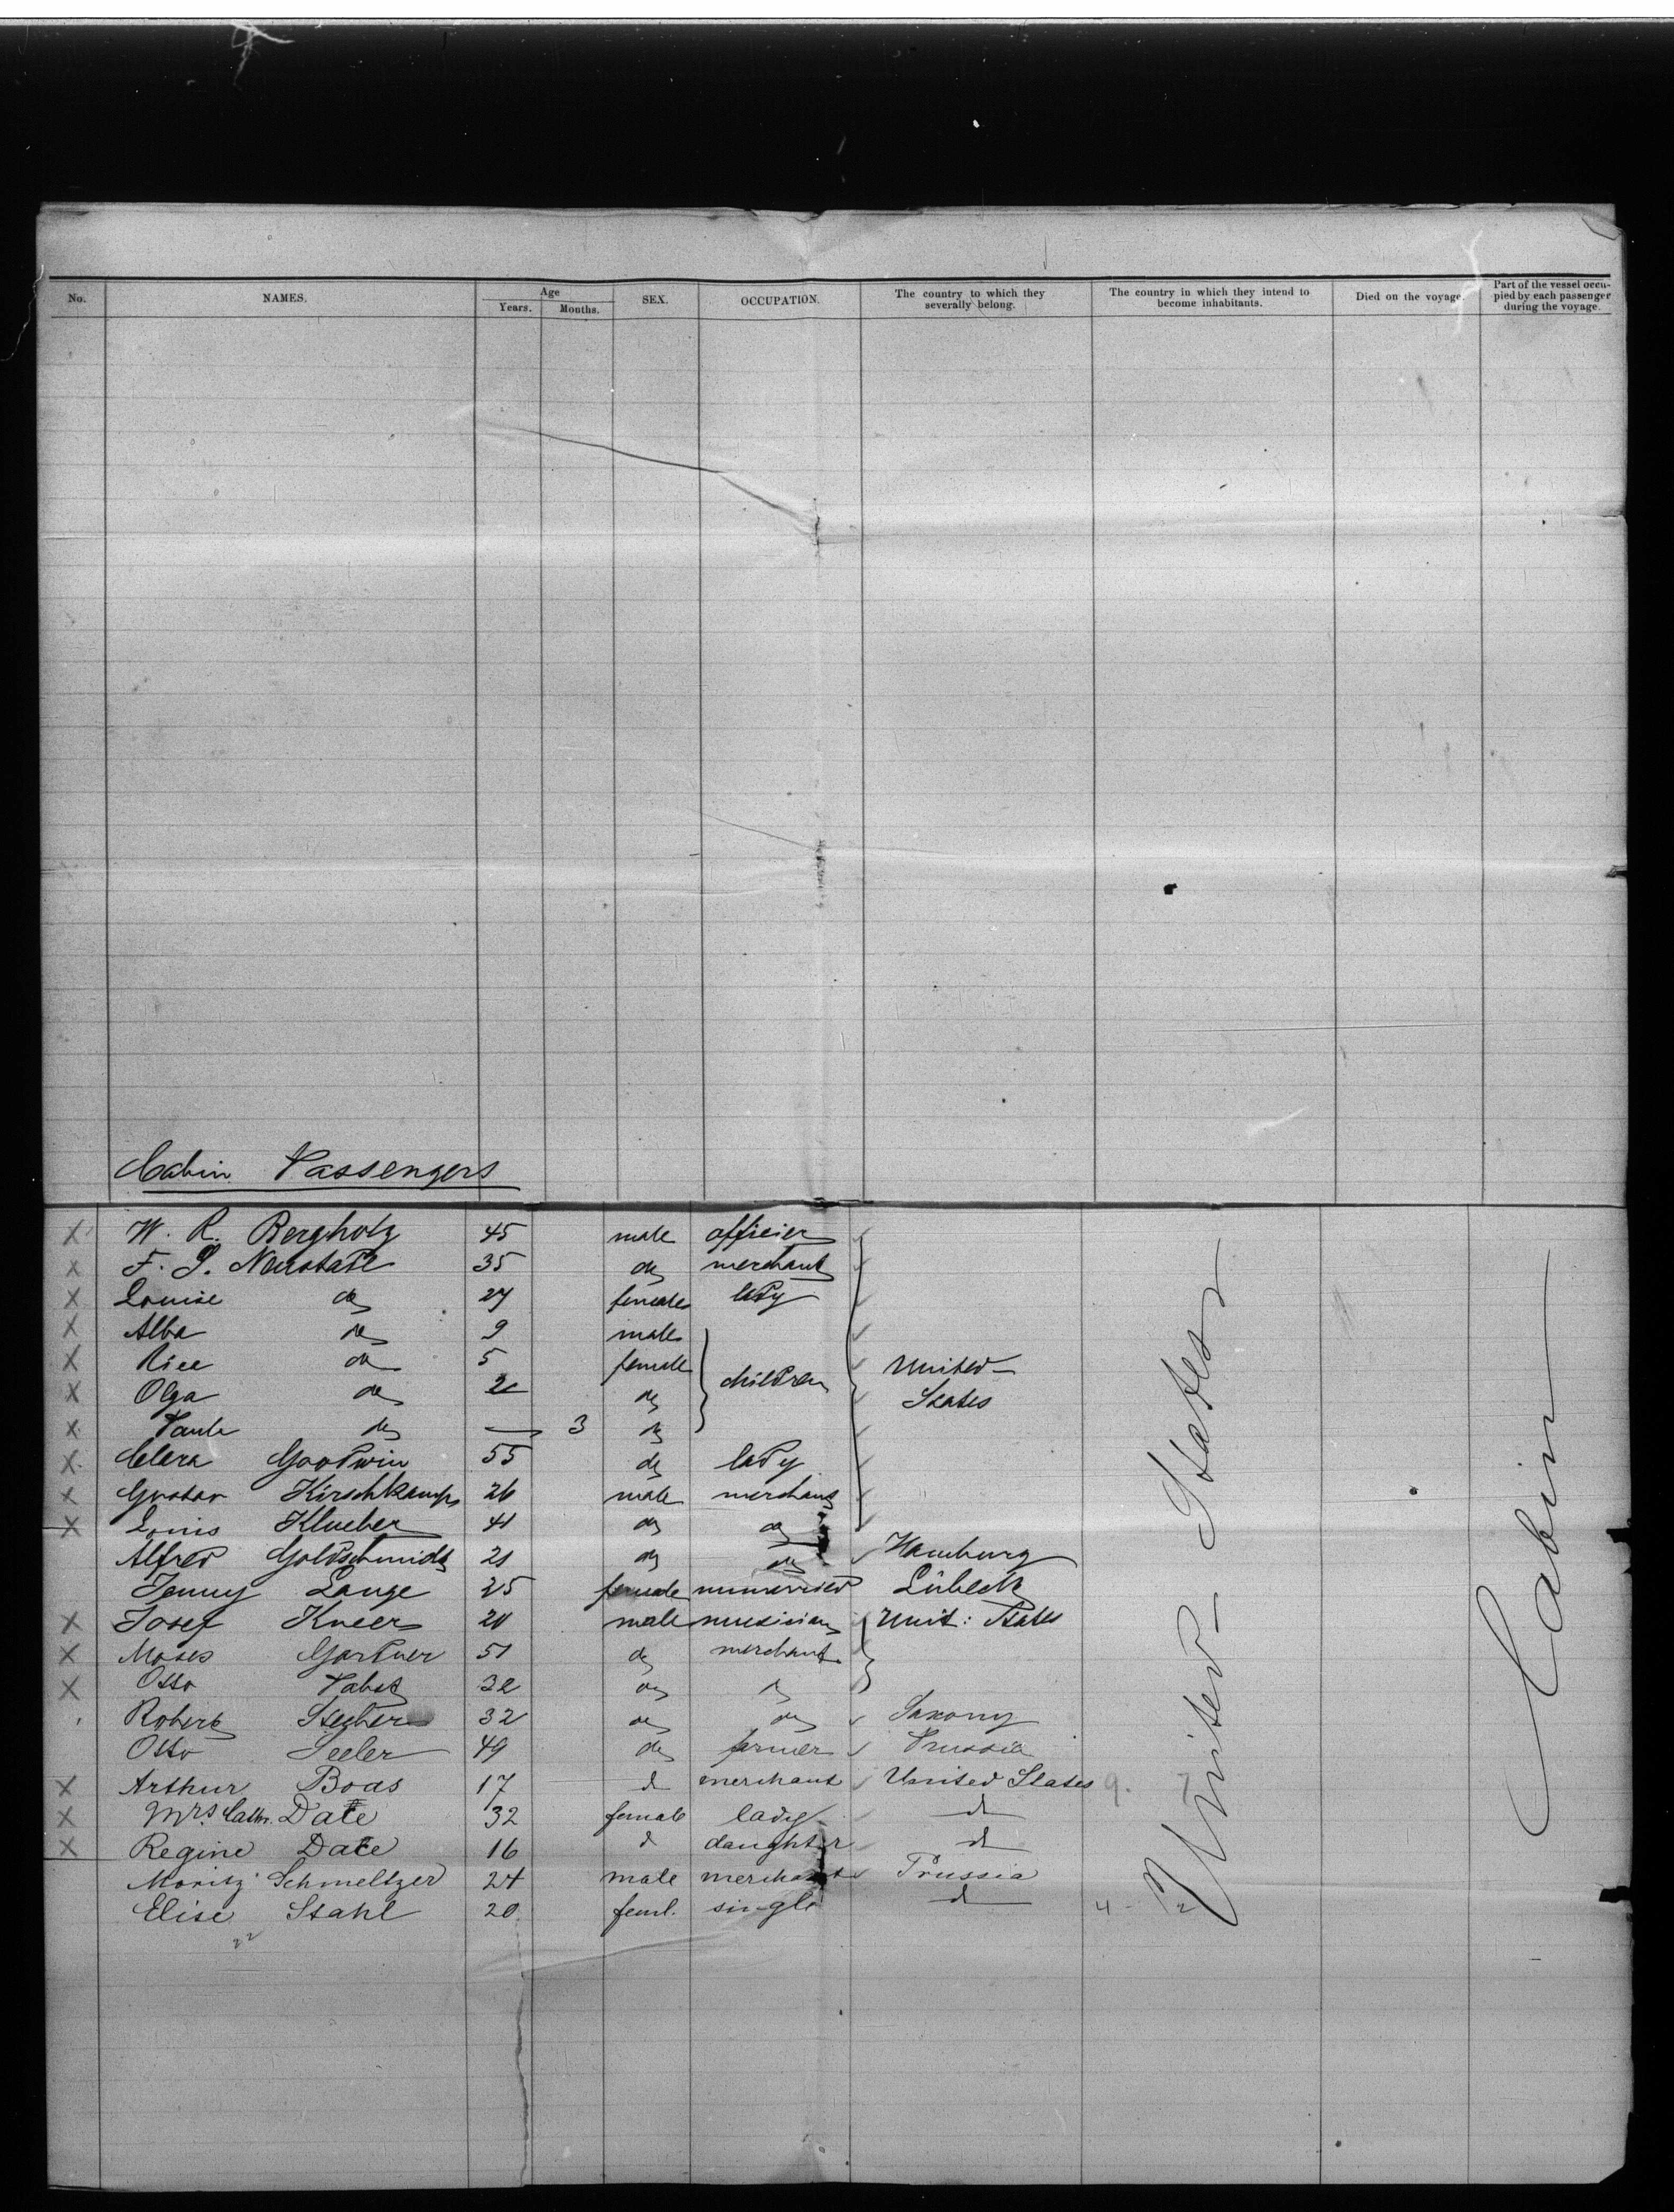 No. NAMES. Age Years. Months. SEX. OCCUPATION. The country to which they severally belong. The country in which they intend to become inhabitants. Died on the voyage. Part of the vessel occupied by each passenger during the voyage.
Cabin Passengers
X W. R. Bergholz 45 male officier
X F. S. Neustadt 35 do merchant
X Louise do 27 female lady
X Alba do 9 male
X Rica do 5 female children United
X Olga do 2 do States
X do — 3 do
X Clara Goodwin 55 do lady
X Gustav Kirschkamp 26 male merchant
X Louis Klueber 41 do do
Alfred Goldschmidt 21 do do Hamburg
Jenny Lange 25 female unmerried Lübeck
X Josef Kneer 20 male musician Unit: States
X Moses Gardner 51 do merchant
X Otto Pabst 32 do do
Robert 32 do do Saxony
Otto Seeler 49 do farmer Prussia
X Arthur Boas 17 d merchant United States 9.
X Mrs. Cath. Date 32 female lady d
X Regine Date 16 d daughter d
Moritz Schmeltzer 24 male merchant Prussia
Elise Stahl 20 feml. single d 4
22
United States
Cabin